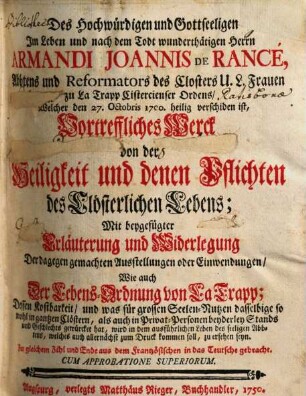 Des Hochwürdigen und Gottseeligen
Im Leben und nach dem Todt wunderthätigen Herrn
ARMANDI JOANNIS DE RANCÉ,
Abtens und Reformators des Closters U. L. Frauen
zu La Trapp Cistercienser Ordens/
Welcher den 27. Octobris 1700. heilig verschiden ist,
Vortreffliches Werck
von der
Heiligkeit und denen Pflichten
des Clösterlichen Lebens;
Mit beygefügter
Erläuterung und Widerlegung
Der dagegen gemachten Ausstellungen oder Einwendungen/
Wie auch
Der Lebens-Ordnung von La Trapp;
Dessen Kostbarkeit/ und was für grossen Seelen-Nutzen dasselbige so
wohl in gantzen Clöstern/ als auch in Privat-Personen beyderley Stands
und Geschlechts gewürcket hat, wird in dem ausführlichen Leben des seeligen Abb-
tens, welches auch allernächst zum Druck kommen soll, zu ersehen seyn.
Zu gleichem Zihl und Ende aus dem Frantzösischen in das Teutsche gebracht.
CUM APPROBATIONE SUPERIORUM.
Augspurg, verlegts Matthäus Rieger, Buchhandler, 1750.